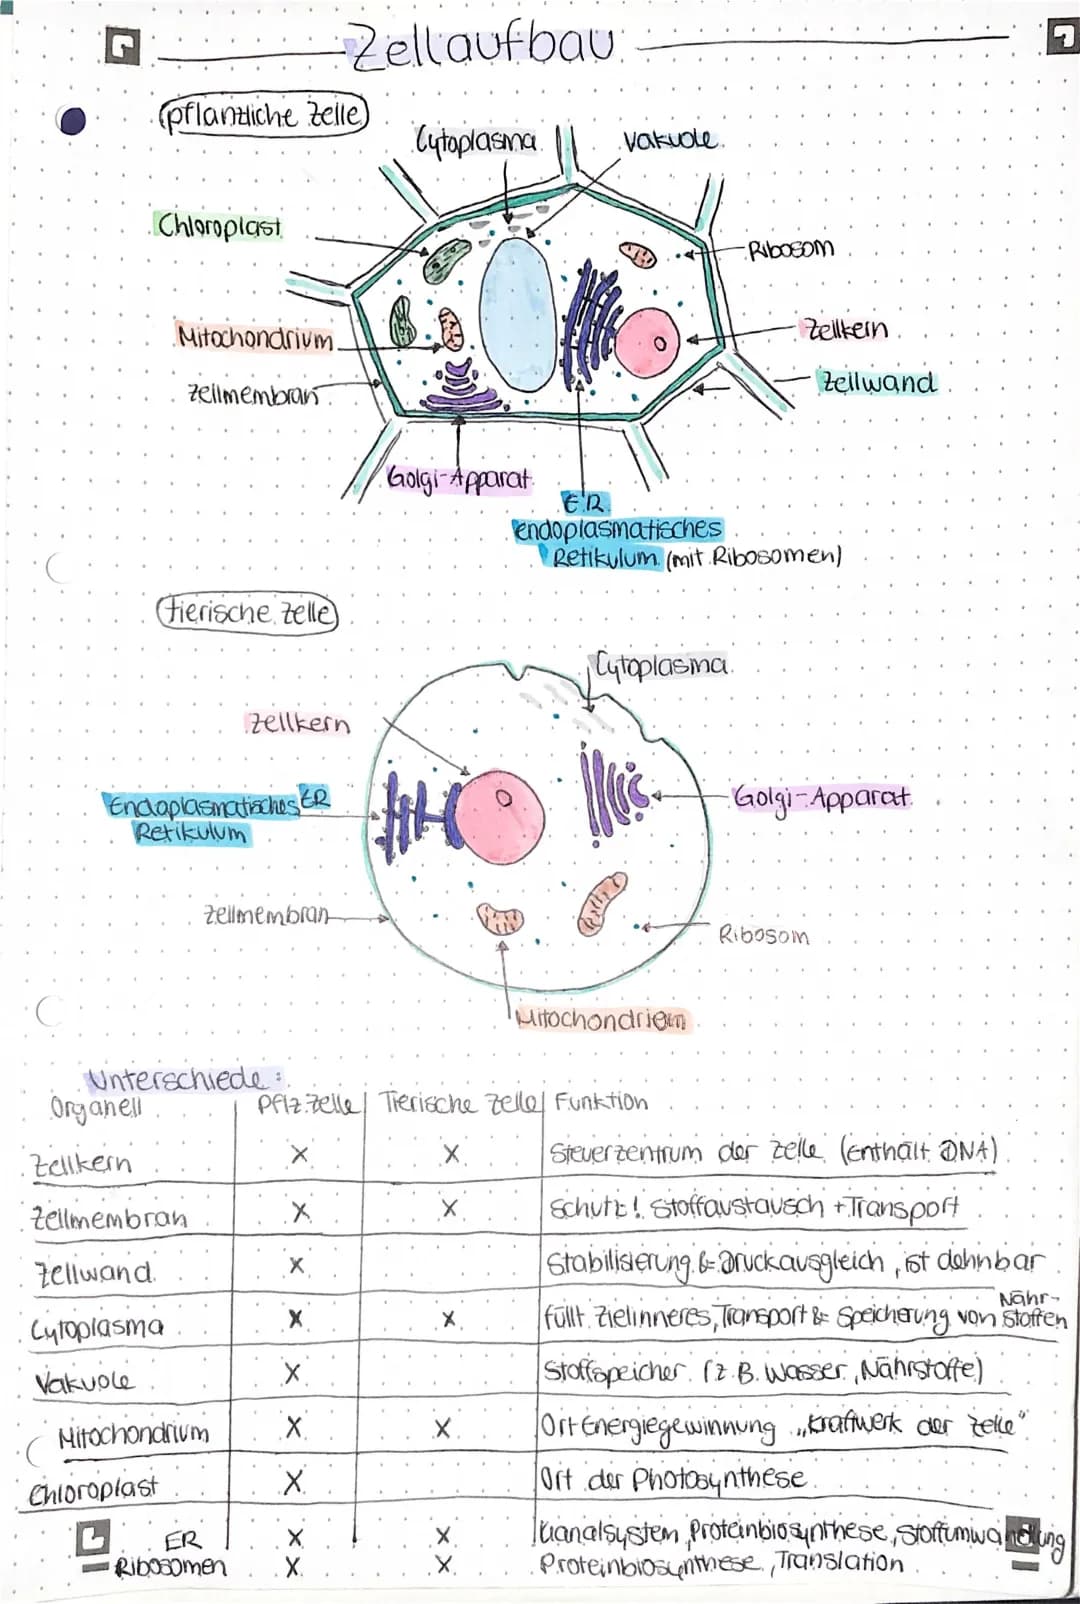 Zellaufbau
pflanzliche Zelle
Cytoplasma
Vakuole
Chloroplast
Ribosom
Mitochondrium
Zellkern
Zellmembran
Zellwand
Golgi-Apparat
E.R.
endoplasmatisches
Retikulum (mit Ribosomen)
tierische Zelle
Cytoplasma
Zellkern
Endoplasmatisches ER
Retikulum
Golgi-Apparat
Zellmembran
Ribosom
Unterschiede:
Organell Pflz. Zelle Tierische Zelle Funktion
Zellkern X X Steuerzentrum der Zelle (Enthält DNA)
Zellmembran X X Schutz! Stoffaustausch + Transport
Zellwand X Stabilisierung & Druckausgleich, ist dehnbar
Cytoplasma X X füllt Zielinneres, Transport & Speicherung von Nähr-
stoffen
Vakuole X Stoffspeicher (z.B. Wasser, Nährstoffe)
Mitochondrium X X Ort Energiegewinnung „Kraftwerk der Zelle"
Chloroplast X Ort der Photosynthese
ER X X Kanalsystem, Proteinbiosynthese, Stoffumwandlung
Ribosomen X X Proteinbiosynthese, Translation